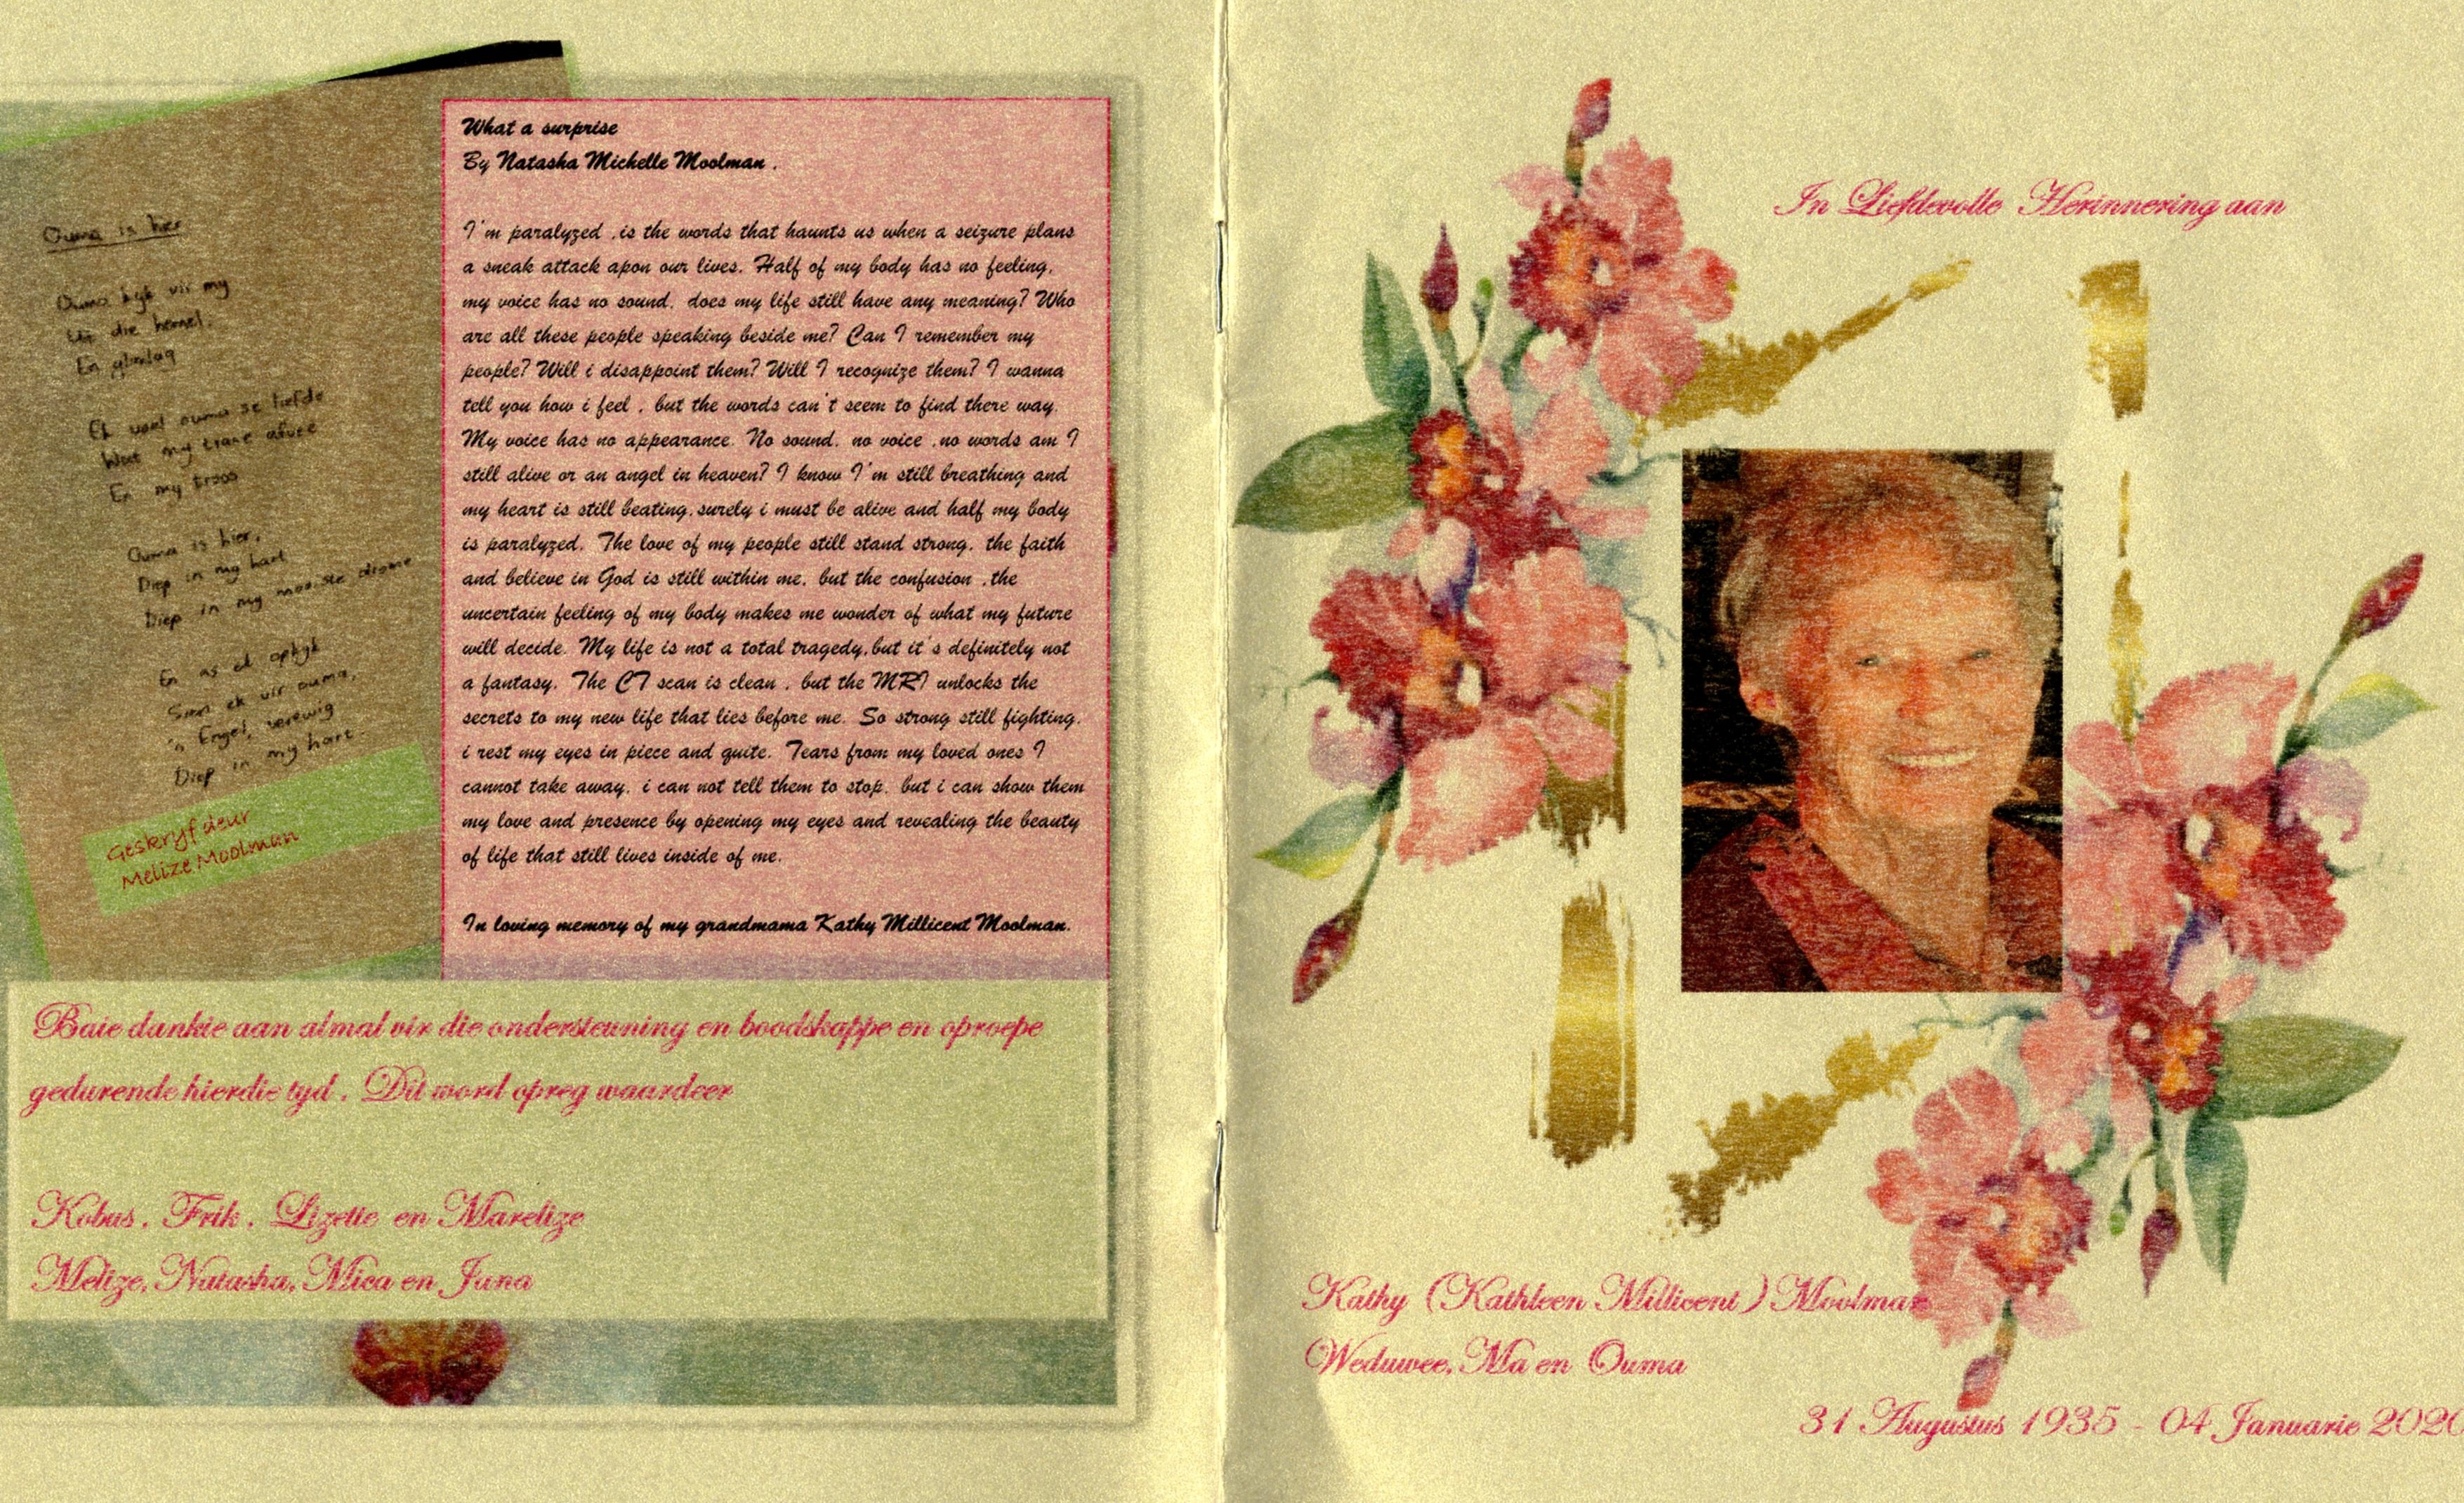 Ouma is hier
Ouma kyk vir my
Uit die hemel.
En glimlag
Ek voel ouma se liefde
Wat my trane afvee
En my troos
Ouma is hier,
Diep in my hart
Diep in my mooiste drome
En as ek opkyk
Sien ek vir ouma,
'n Engel, verewig
Diep in my hart.
Geskryf deur
Melize Moolman
What a surprise
By Natasha Michelle Moolman .
I'm paralyzed ,is the words that haunts us when a seizure plans
a sneak attack apon our lives. Half of my body has no feeling,
my voice has no sound, does my life still have any meaning? Who
are all these people speaking beside me? Can I remember my
people? Will i disappoint them? Will I recognize them? I wanna
tell you how i feel , but the words can't seem to find there way.
My voice has no appearance. No sound, no voice ,no words am I
still alive or an angel in heaven? I know I'm still breathing and
my heart is still beating,surely i must be alive and half my body
is paralyzed. The love of my people still stand strong, the faith
and believe in God is still within me, but the confusion ,the
uncertain feeling of my body makes me wonder of what my future
will decide. My life is not a total tragedy,but it's definitely not
a fantasy. The CT scan is clean , but the MRI unlocks the
secrets to my new life that lies before me. So strong still fighting,
i rest my eyes in piece and quite. Tears from my loved ones I
cannot take away, i can not tell them to stop, but i can show them
my love and presence by opening my eyes and revealing the beauty
of life that still lives inside of me.
In loving memory of my grandmama Kathy Millicent Moolman.
Baie dankie aan almal vir die ondersteuning en boodskappe en oproepe
gedurende hierdie tyd . Dit word opreg waardeer
Kobus , Frik , Lizette en Marelize
Melize, Natasha, Mica en Juna
In Liefdevolle Herinnering aan
Kathy (Kathleen Millicent) Moolman
Weduwee, Ma en Ouma
31 Augustus 1935 - 04 Januarie 2020